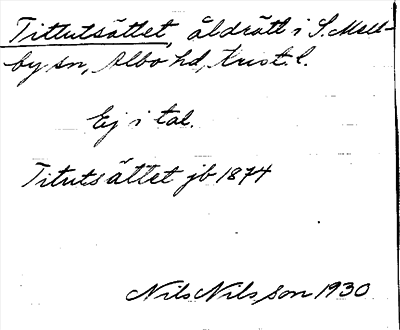 Tittutsättet, åldrätt i S. Mell-
by sn, Albo hd, Krist. l.
Ej i tal.
Titutsättet jb 1874
Nils Nilsson 1930